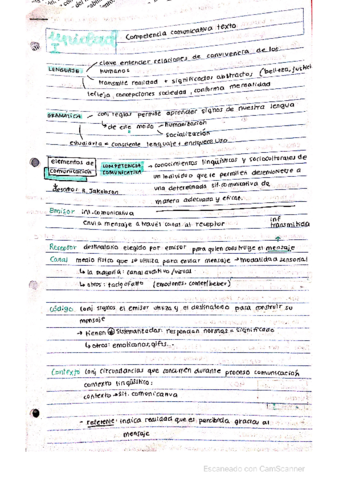 Competencia comunicativa texto
I
clave entender relaciones de convivencia de los
LENGUAJE humanos
transmite realidad + significados abstractos (belleza,
refleja concepciones sociedad, conforma mentalidad
GRAMÁTICA con reglas permite aprender signos de nuestra lengua
de este modo humanización
socialización
estudiarla = consciente lenguaje, enriquec uso
elementos de COMPETENCIA conocimientos lingüísticos y socioculturales de
comunicación COMUNICATIVA un individuo que le permiten desenvolverse a
R. Jakobson una determinada sit. comunicativa de
manera adecuada y eficaz.
Emisor int. comunicativa inf
Envía mensaje a través canal al receptor transmitida
Receptor destinatario elegido por emisor para quien construye el mensaje
Canal medio física que se utiliza para enviar mensaje → modalidad sensorial
↳ la mayoría: canal auditivo/visual
↳ otros: tacto/olfato
Código conj signos el emisor utiliza y el destinatario para construir su
mensaje
→ tienen subestándar: responden normas = significado
↳ otros: emoticonos, gifs...
Contexto conj circunstancias que concurren durante proceso comunicación
contexto lingüístico:
contexto → sit. comunicativa
- referente: indica realidad que es percibida gracias al
mensaje
Escaneado con CamScanner